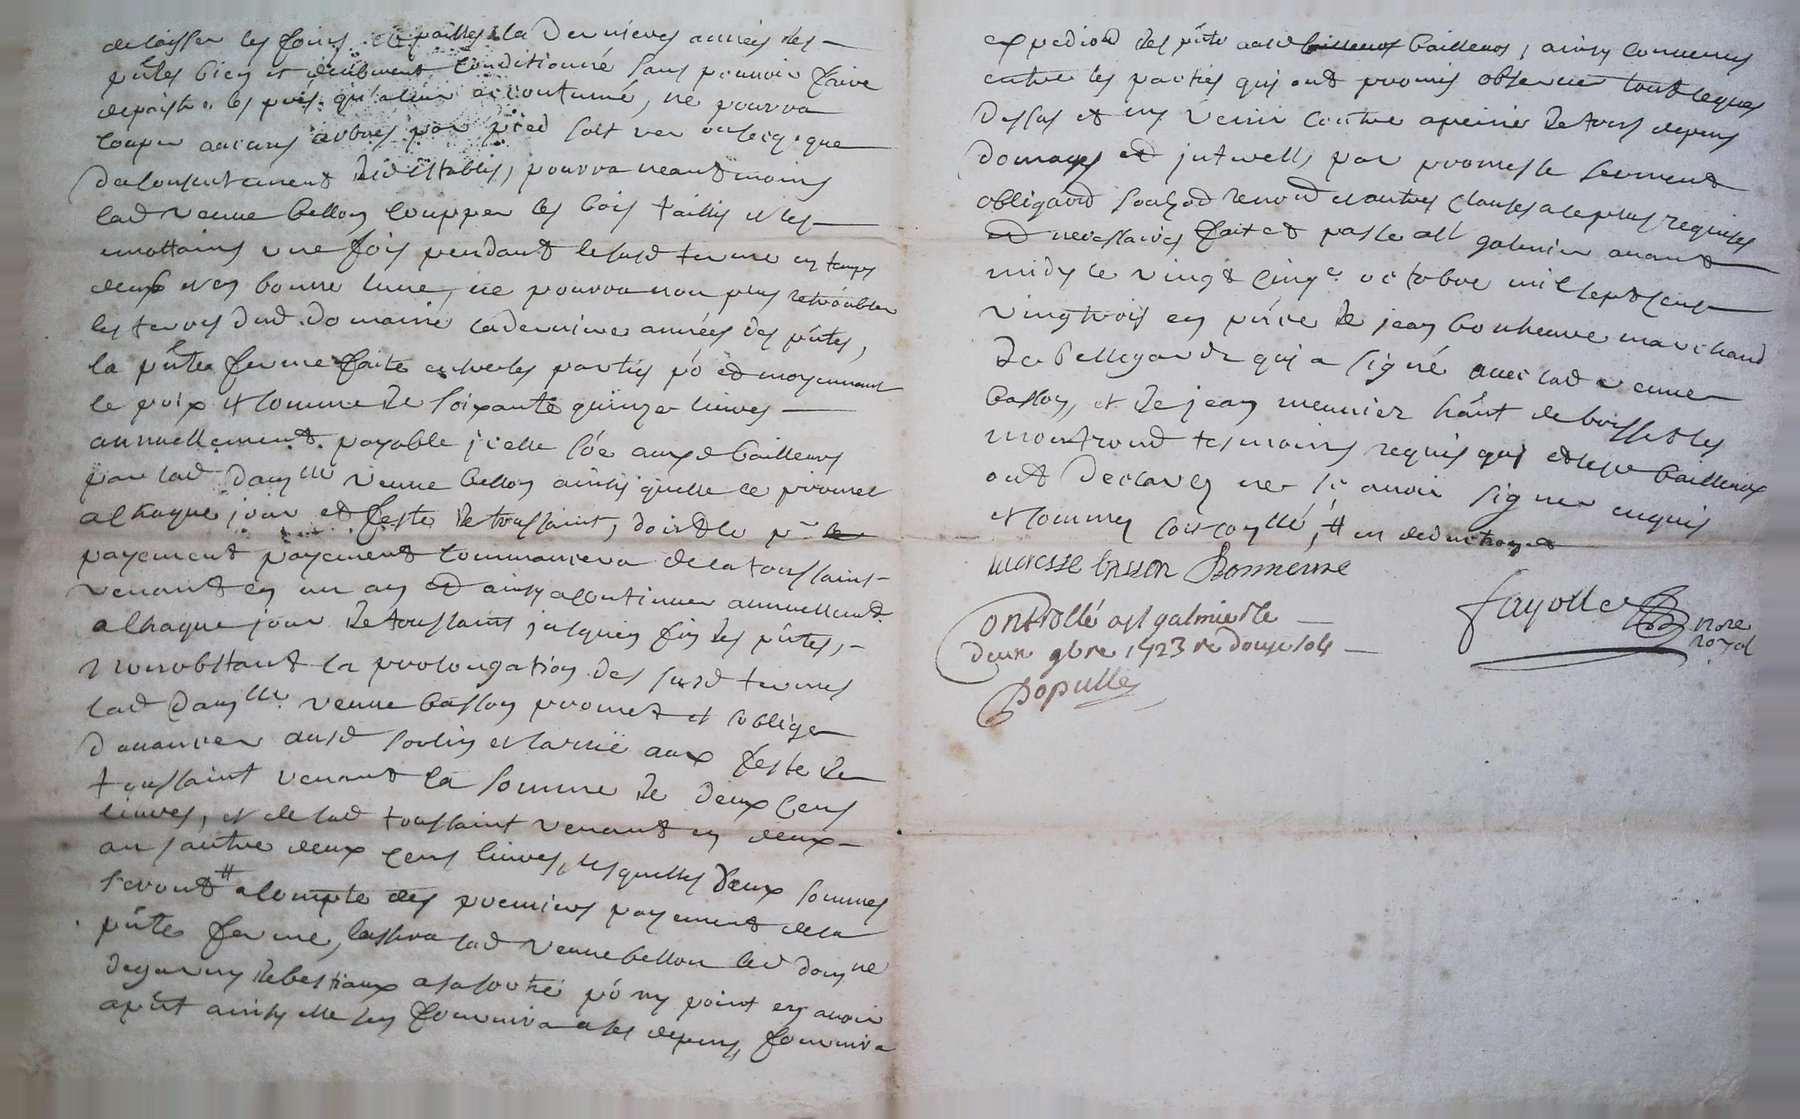 delaisser les foins et pailles la dernieres années des
p̃ntes bien et deuëment conditionné sans pouvoir faire
depaistre les prés qu'aleur accoutumé, ne pourra
couper aucuns arbres par pied soit ver ou secq, que
du consentement desd establis, pourra neantmoins
lad veuve bellon coupper les bois taillis et les
une fois pendant le susd terme en temps
deux et en bonne lune, ne pourra non plus retroubler
les terres dud domaine la derniere années des p̃ntes,
la p̃nte ferme faite entre les parties po et moyennant
le prix et somme de soixante quinze livres
annuellement payable icelle so͂e ausd bailleurs
par lad damlle veuve bellon ainsy quelle ce promet
a chaque jour et feste de toussaint, dont le pr
payement payement commancera de la toussaint
venant en un an et ainsy a continuer annuellemt
a chaque jour de toussaint jusques en fin des p̃ntes,
nonobstant la prolongation des susd termes
lad damlle veuve basson promet et soblige
davancer ausd et aux feste de
toussaint venant la somme de deux cens
livres, et de lad toussaint venant en deux
an sautre deux cens livres, lesquelles deux sommes
seront # a compte des premiers payement de la
p̃nte ferme, laissera lad veuve bellon led domne
degarny de bestiaux a sa sortie po ny point en avoir
apñt ainsy elle sen fournira a ses depens, fournira
expedion des p̃nte ausd bailleurs, ainsy convenus
entre les parties qui ont promis observer tout leques
dessus et ny venir contre apeine de tous depens
domages et intrests par promesse serment
obligaōn renon et autres clauses a ce plus requises
et necessaires fait et passe a st galmier avant
midy le vingt cinqe octobre mil sept cent
vingt trois en p̃nce de jean bonneure marchand
de bellegarde qui a signé avec lad veuve
basson, et de jean meunier hãnt de boisset les
montrond tesmoins requis qui et lesd bailleurs
ont declarés ne sc̃avoir signer enquis
et sommes , # en deduction
lucresse basson Bonneure
Controllé a st galmier le
deux 9bre 1723 re douze sols
Populle
fayolle nore
royal